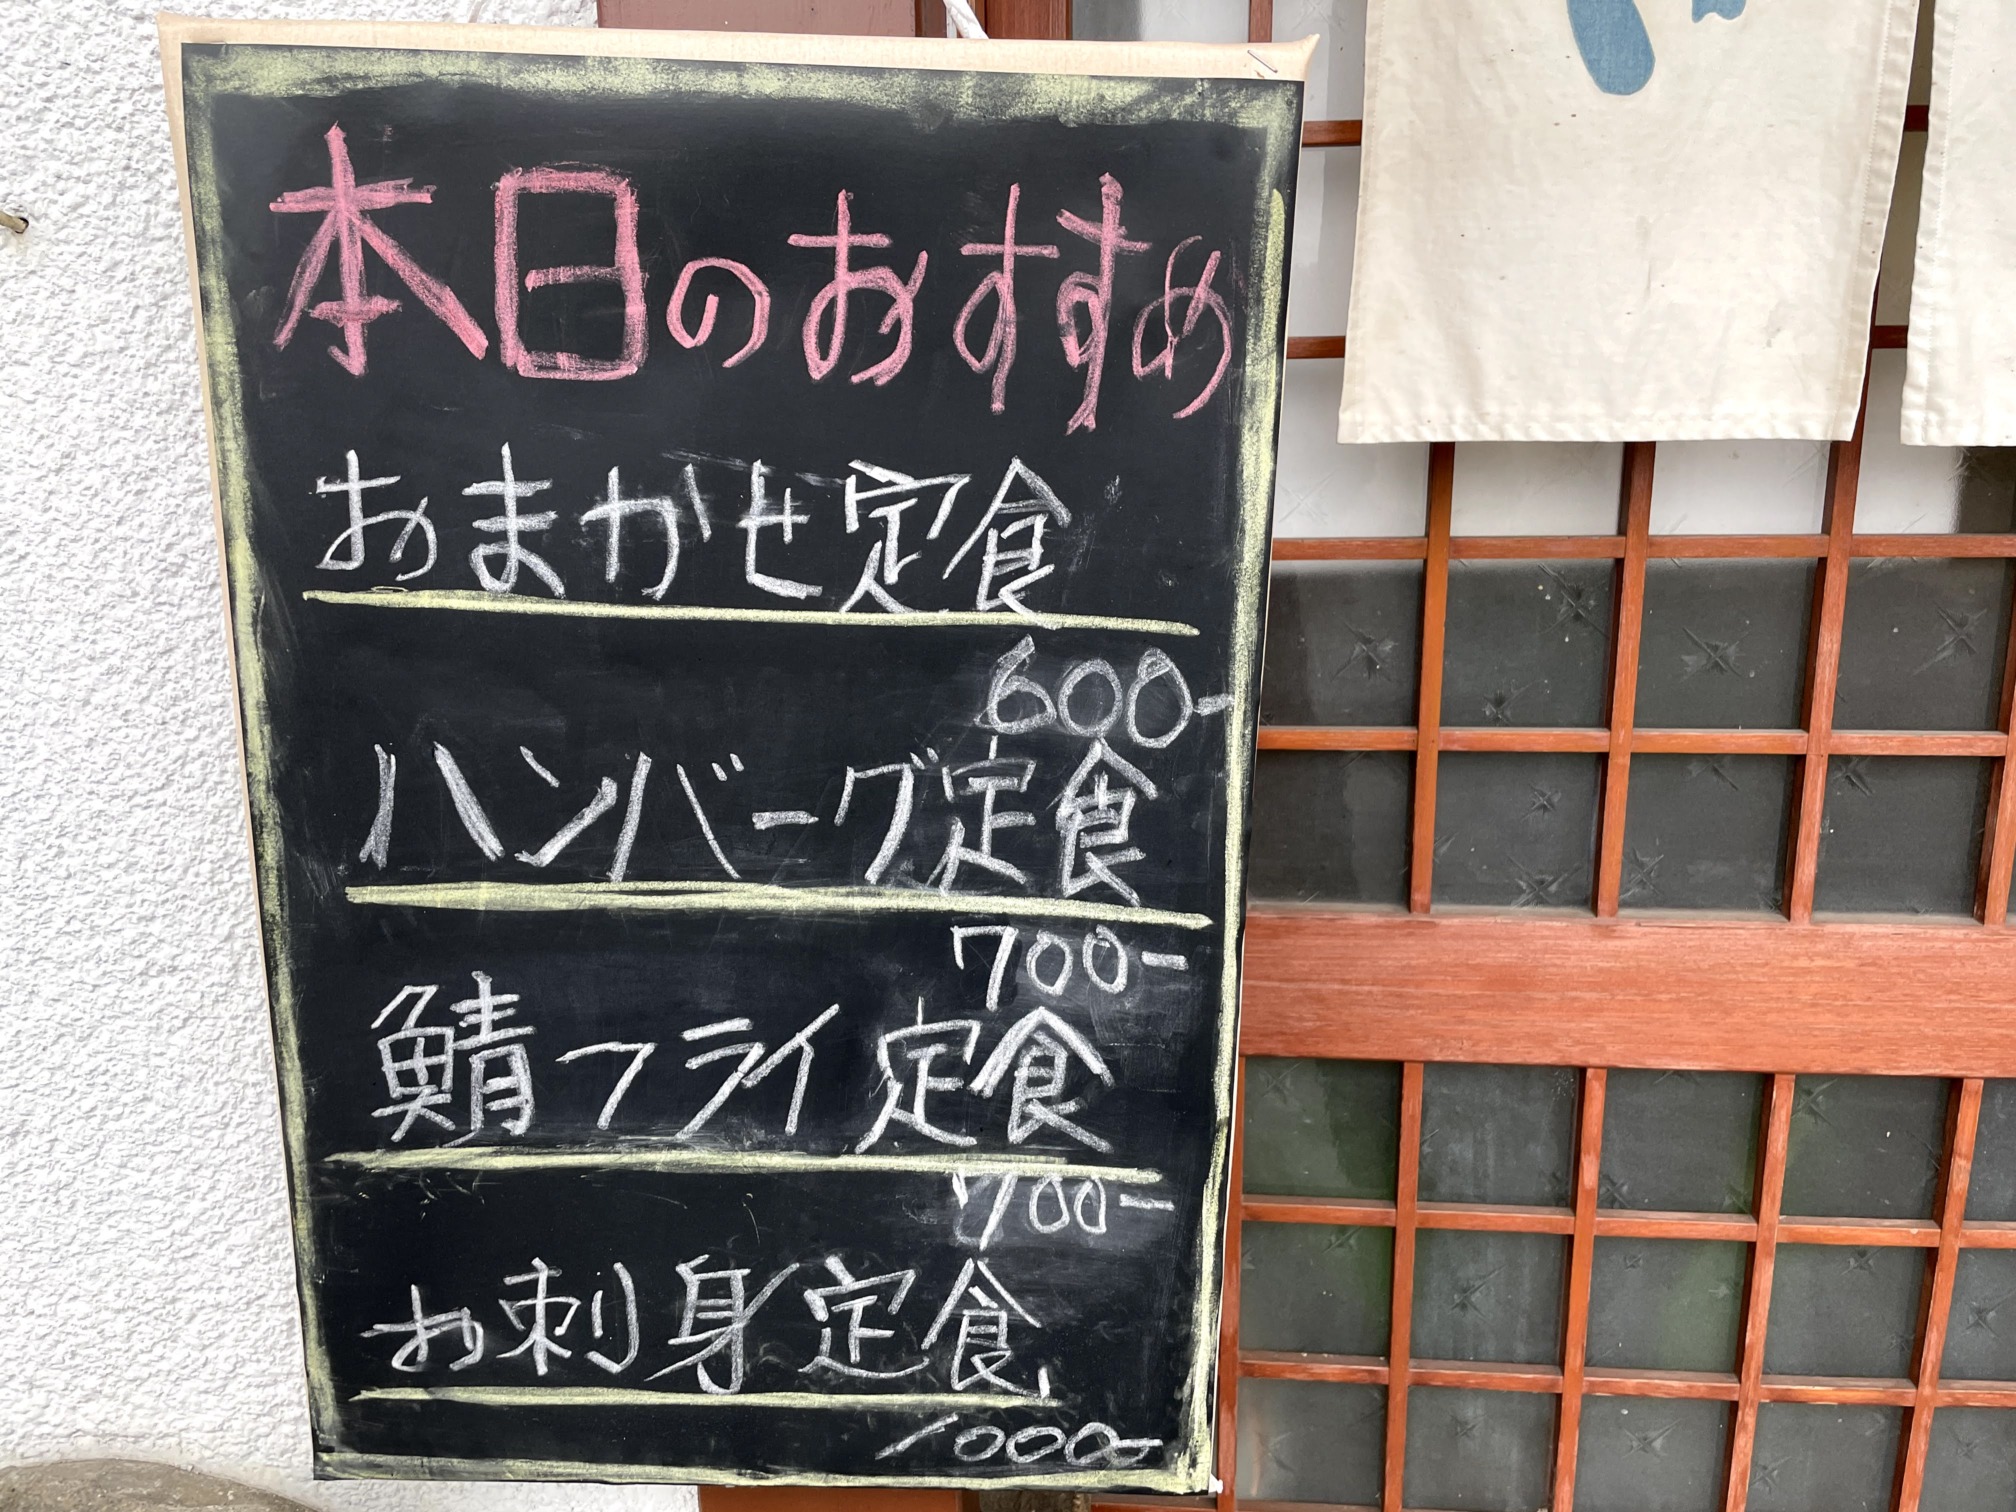 本日のおすすめ
おまかせ定食
600-
ハンバーグ定食
700-
鯖フライ定食
700-
お刺身定食
1000-